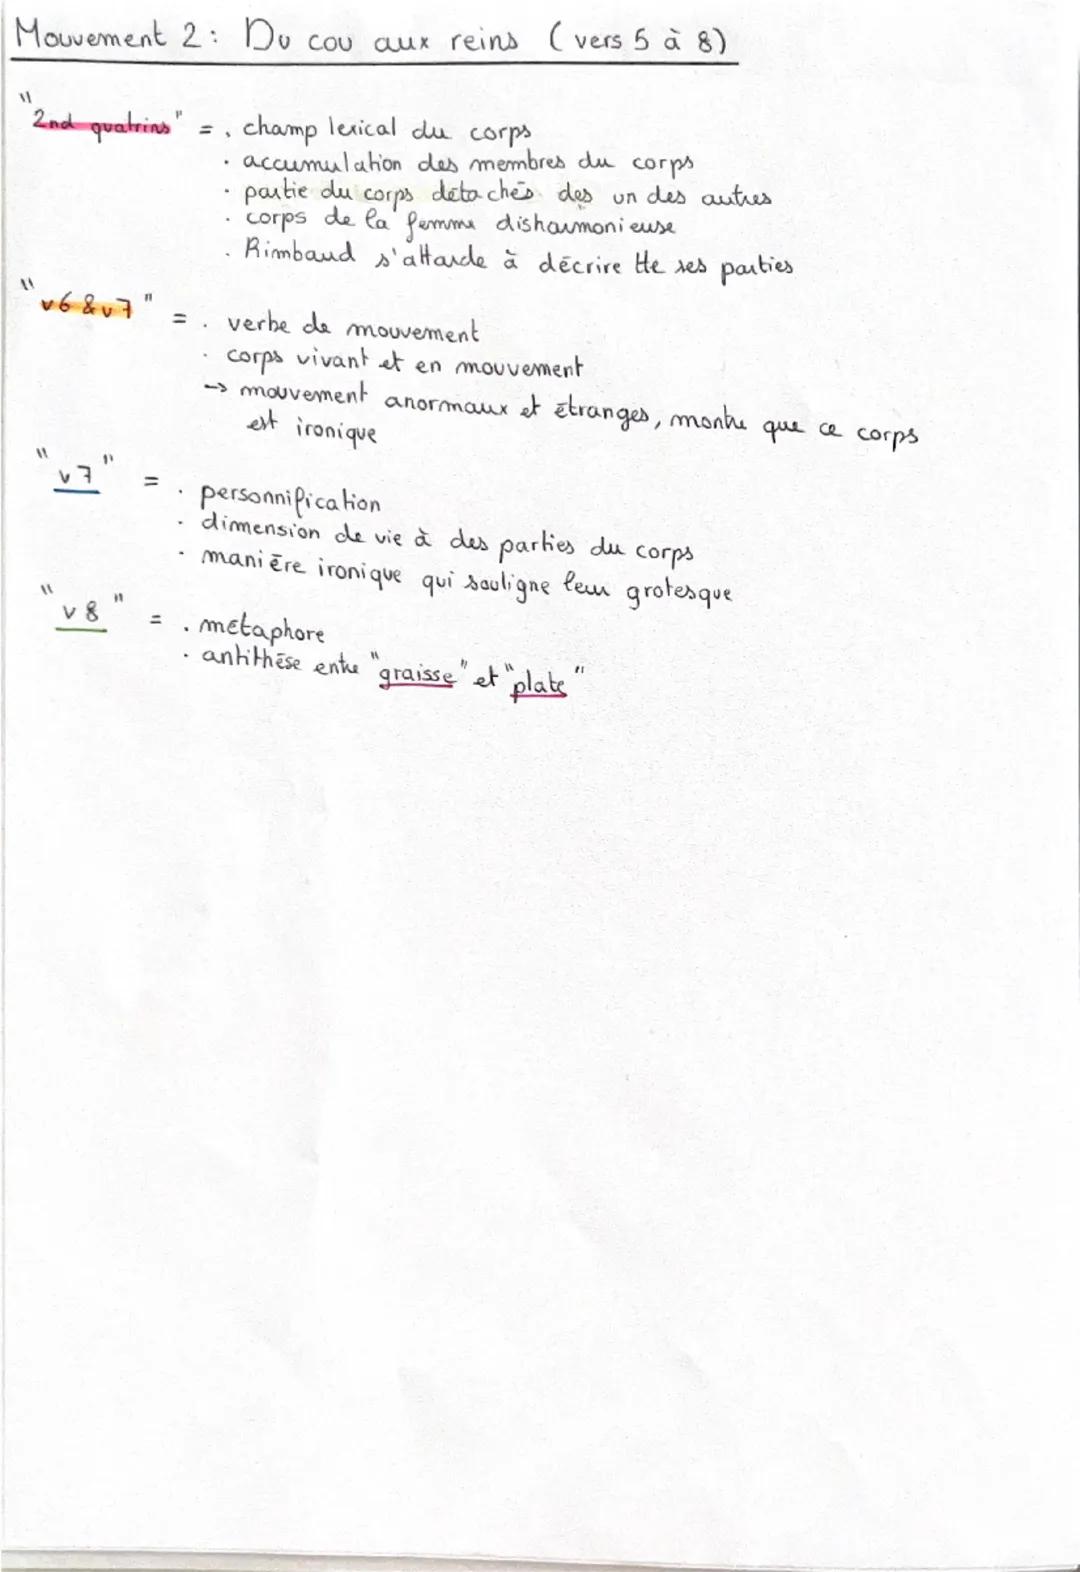 Mouvement 2 : Du cou aux reins (vers 5 à 8)
"2nd quatrins" = . champ lexical du corps
. accumulation des membres du corps
. partie du corps détachés des un des autres
. corps de la femme disharmonieuse
. Rimbaud s'attarde à décrire tte ses parties
"v6 & v7" = . verbe de mouvement
. corps vivant et en mouvement
-> mouvement anormaux et étranges, montre que ce corps
est ironique
"v7" = . personnification
. dimension de vie à des parties du corps
. manière ironique qui souligne leur grotesque
"v8" = . métaphore
. antithèse entre "graisse" et "plate"